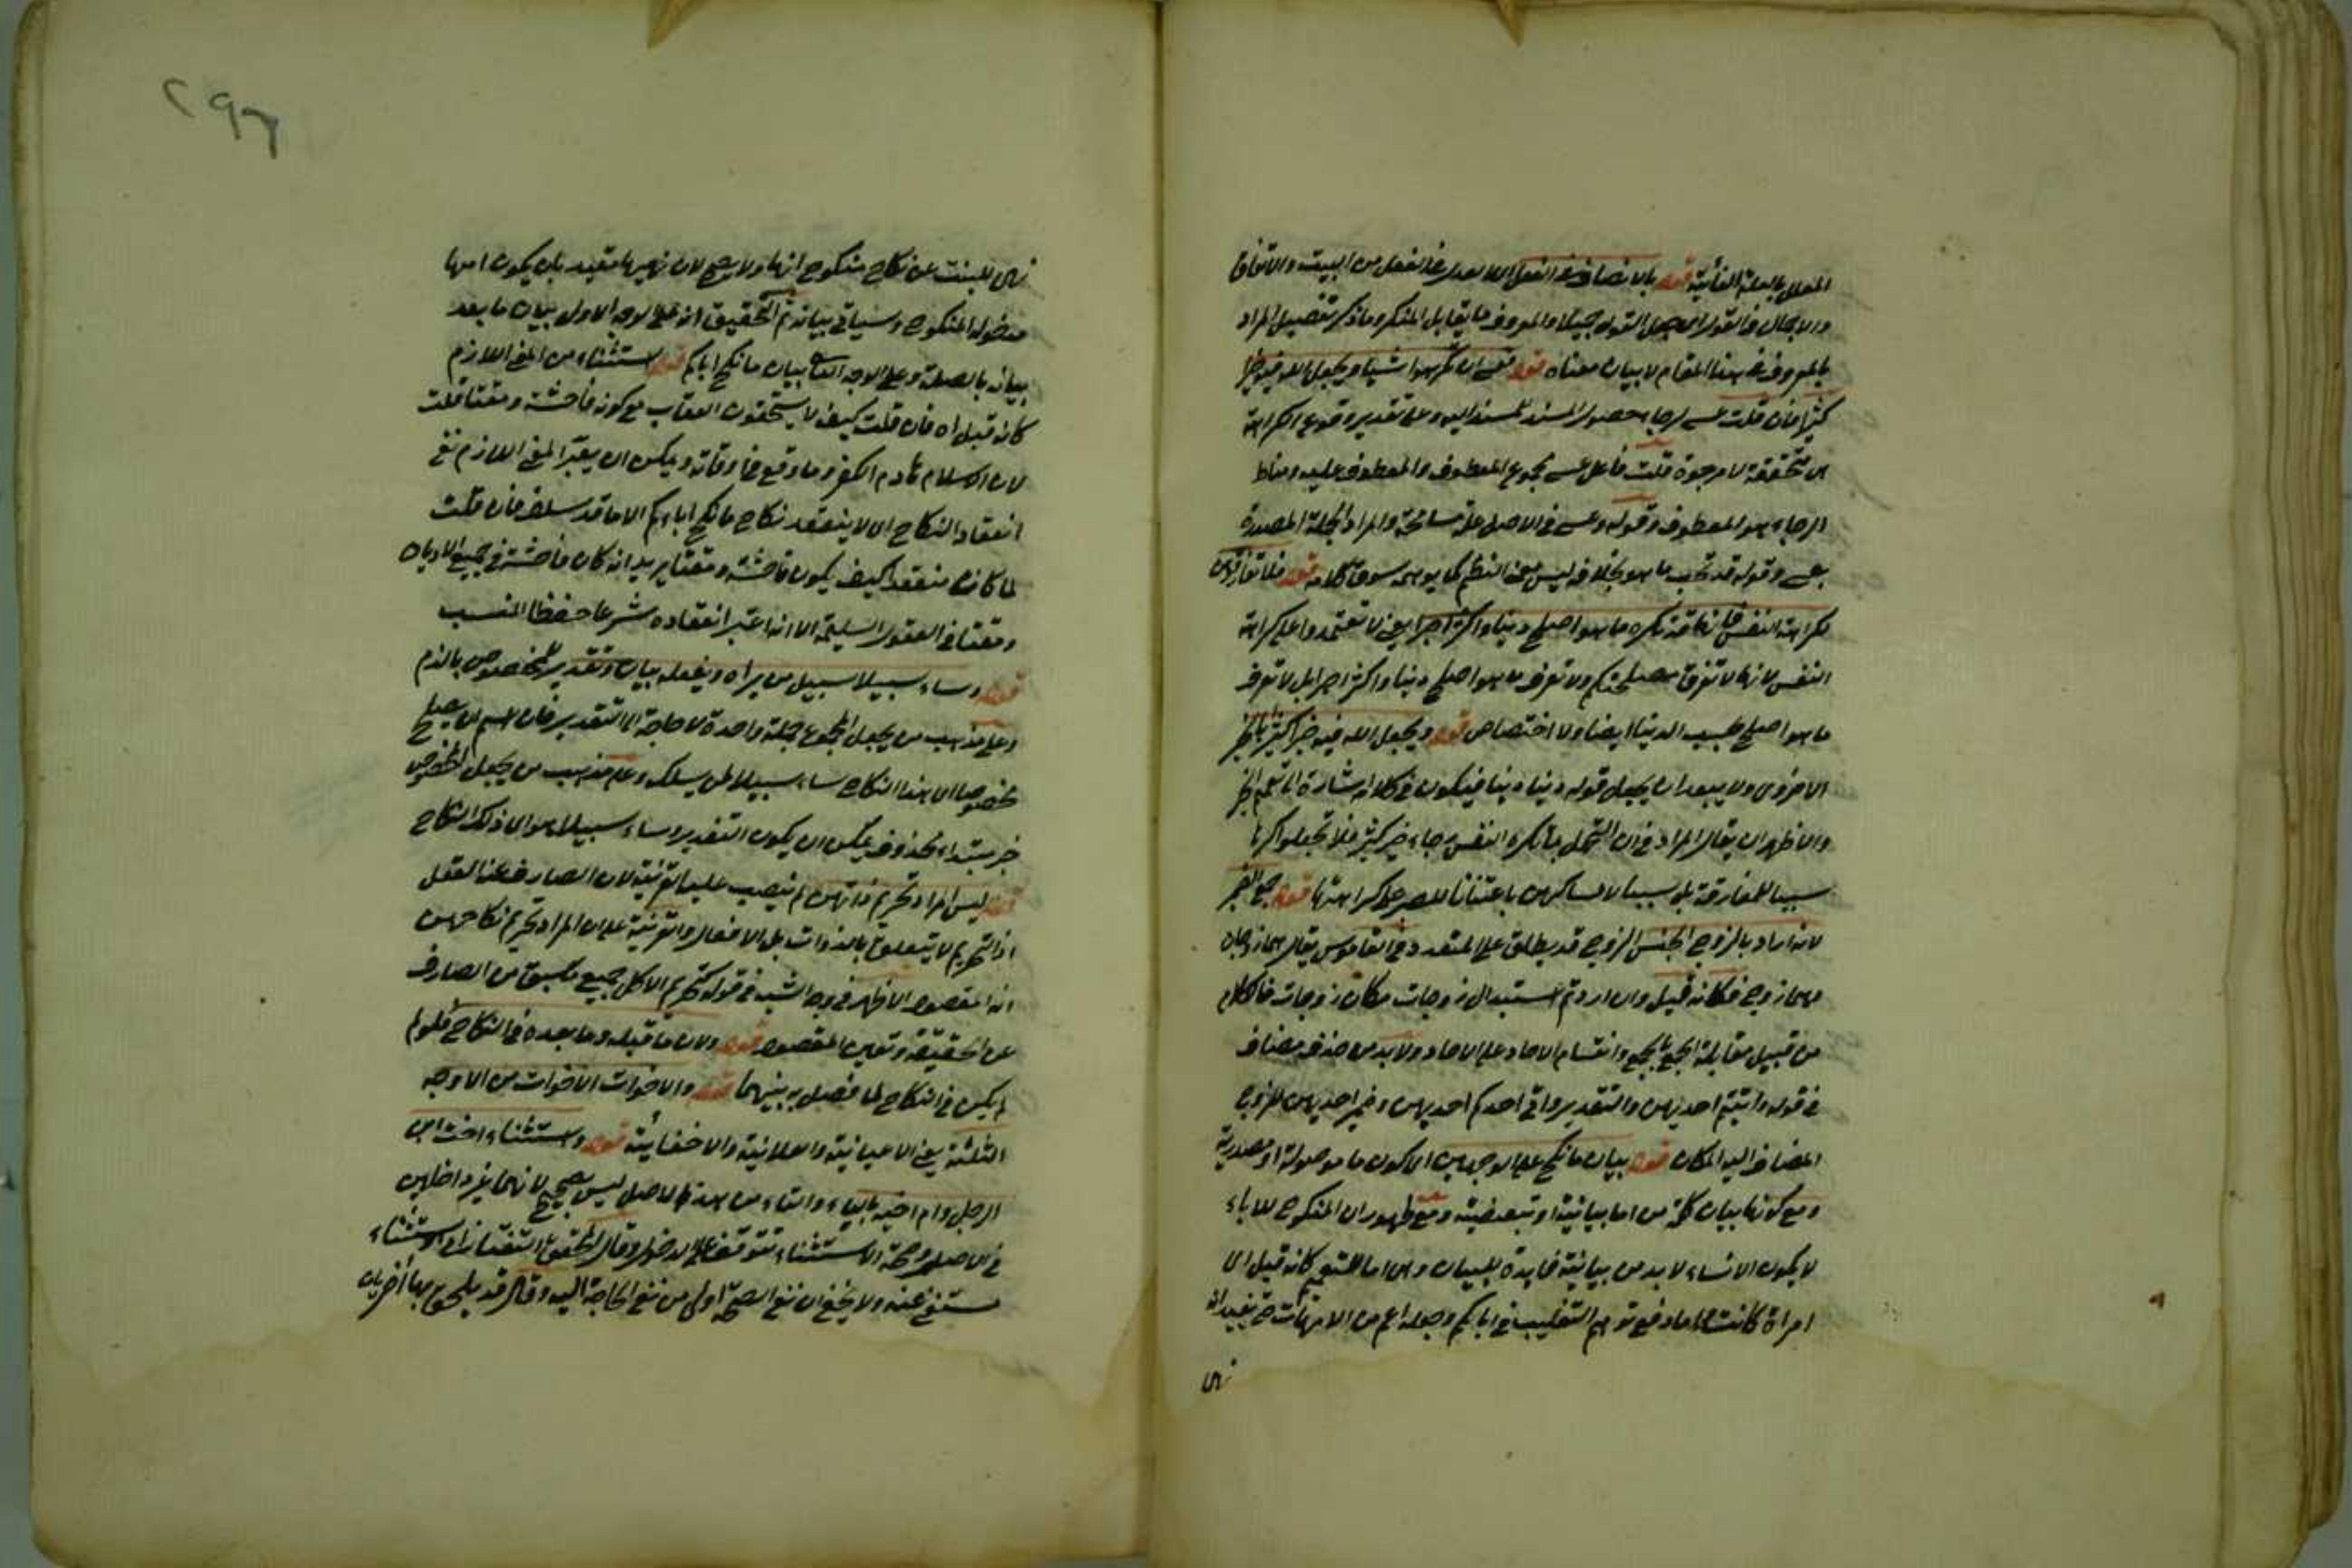 المعلل بالعلة الغائية قوله بالانصاف في الفعل من البيت والانفاق
والاجمال في القول اي جعل القول جميلا والمعروف ما يقابل المنكر وما ذكر تفصيل المراد
بالمعروف في هذا المقام لا بيان معناه قوله فعسى ان تكرهوا شيئا ويجعل الله فيه خيرا
كثيرا فان قلت عسى لرجاء حصول المسند للمسند اليه وعلى تقدير وقوع الكراهة
هي متحققة لا مرجوة قلت فاعل عسى مجموع المعطوف والمعطوف عليه ومناط
الرجاء هو المعطوف وقوله وعسى في الاصل علة مسامحة والمراد الجملة المصدرة
بعسى وقوله قد تحب ما هو بخلافه ليس معنى النظم كما يوهمه سوق كلامه قوله فلا تفارقوهن
لكراهة النفس فانها قد تكره ما هو اصلح دينا واكثر اجرا يعني لا تعتمدوا على كراهة
النفس لانها لا تعرف مصلحتكم ولا تعرف ما هو اصلح دينا واكثر اجرا بل لا تعرف
ما هو اصلح بحسب الدنيا ايضا ولا اختصاص قوله ويجعل الله فيه خيرا كثيرا بالخير
الاخروي ولا يبعد ان يجعل قوله دينا دنيا فيكون في كلامه اشارة الى تعميم الخير
والاظهر ان يقال المراد في ان التحمل بما تكره النفس رجاء خير كثير فلا تجعلوا كرها
سببا للمفارقة بل سببا لامساكهن باعتنانا للصبر على كراهتها قوله جمع الضمير
لانه اراد بالزوج الجنس الزوج قد يطلق على المتعدد في القاموس يقال هما زوجان
وهما زوج فكانه قيل وان اردتم استبدال زوجات مكان زوجات فالكلام
من قبيل مقابلة الجمع بالجمع وانقسام الاحاد على الاحاد ولا بد من حذف مضاف
في قوله واتيتم احديهن والتقدير واتى احدكم احديهن وضمير احديهن للزوج
المضاف اليه المكان قوله بيان ما نكح على الوجهين اي كون ما موصولة او مصدرية
ومع كونها بيان كلمة من اما بيانية او تبعيضية ومع ظهور ان المنكوح للاباء
لا يكون الا نساء لا بد من بيانية فايدة للبيان وهي اما للتعميم كانه قيل اي
امراة كانت واما دفع توهم التغليب في اباءكم وجعله اعم من الامهات حتى يفيد انه
نهي
٢٩٦
نهي للبنت عن نكاح منكوح امها ولا يصح لان نهيها مقيد بان يكون امها
مدخولة المنكوح وسياتي بيانه ثم التحقيق انه على الوجه الاول بيان ما بعد
بيانه بالصلة وعلى الوجه الثاني بيان ما نكح اباؤكم قوله استثناء من المعنى اللازم
كانه قيل اه فان قلت كيف لا يستحقون العقاب مع كونه فاحشة ومقتا قلت
لان الاسلام هادم الكفر وما وقع في اوقاته ويمكن ان يعتبر المعنى اللازم نفي
انعقاد النكاح اي لا ينعقد نكاح ما نكح اباءكم الا ما قد سلف فان قلت
لما كان منعقدا كيف يكون فاحشة ومقتا يريد انه كان فاحشة في جميع الاديان
ومقتا في العقول السليمة الا انه اعتبر انعقاده شرعا حفظا للنسب
قوله وساء سبيلا سبيل من يراه ويفعله بيان وتقدير للمخصوص بالذم
وعلى مذهب من يجعل المجموع جملة واحدة لا حاجة الى التقدير فان اسم ان يصلح
مخصوصا اي هذا النكاح ساء سبيلا لمن يسلك وعلى مذهب من يجعل المخصوص
خبر مبتداء محذوف يمكن ان يكون التقدير وساء سبيلا هو اي ذلك النكاح
قوله ليس المراد تحريم ذاتهن لم ينصب عليها قرينة لان الصارف هنا العقل
اذ التحريم لا يتعلق بالذوات بل الافعال والقرينة على ان المراد تحريم نكاحهن
انه المقصود الاظهر في وجه الشبه في قوله تحريم الاكل جميع ما سبق من الصارف
عن الحقيقة وتعين المقصود قوله ولان ما قبله وما بعده في النكاح فلو لم
يكن في النكاح لما فصل به بينهما قوله والاخوات الاخوات من الاوجه
الثلثة يعني الاعيانية والعلانية والاخفائية قوله واستثناء اخت ابن
الرجل وام اخيه بالياء والتاء من هذا الاصل ليس بصحيح لانهما غير داخلين
في الاصل وصحة الاستثناء تتوقف على الدخول وقال المحقق التفتازاني الاستثناء
مستغنى عنه ولا يخفى ان نفي الصحة اولى من نفي الحاجة اليه وقال قد يلحق بهما اخريان